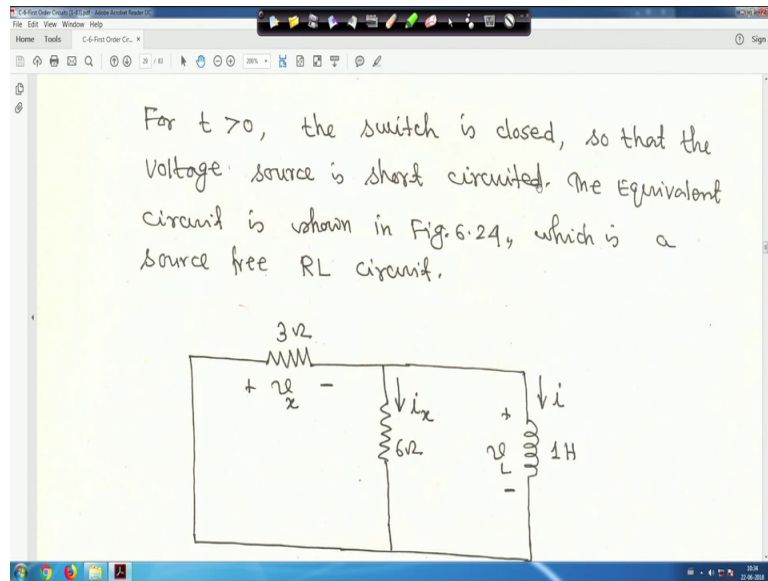 C-6-First Order Circuits (1-83).pdf - Adobe Acrobat Reader DC
File Edit View Window Help
Home Tools C-6-First Order Cir... ×
Sign
29 / 83 200%
For t >0, the switch is closed, so that the
voltage source is short circuited. The Equivalent
circuit is shown in Fig. 6.24, which is a
source free RL circuit.
3Ω
+ vx -
ix
i
+
6Ω
vL
1H
-
10:34
22-06-2018